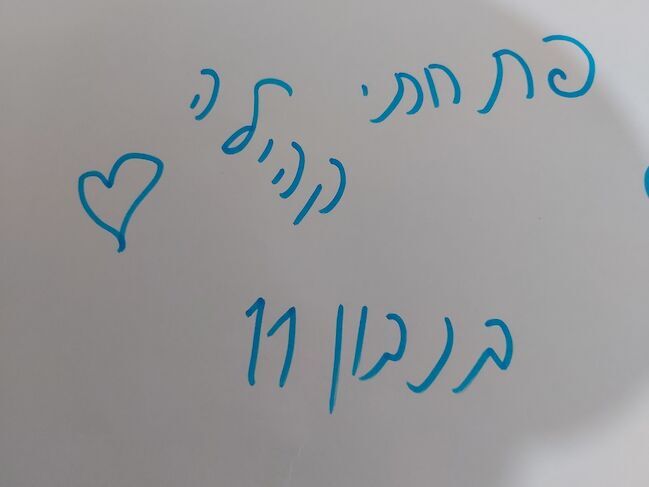 פתחתי
קהילה
בנבון 11